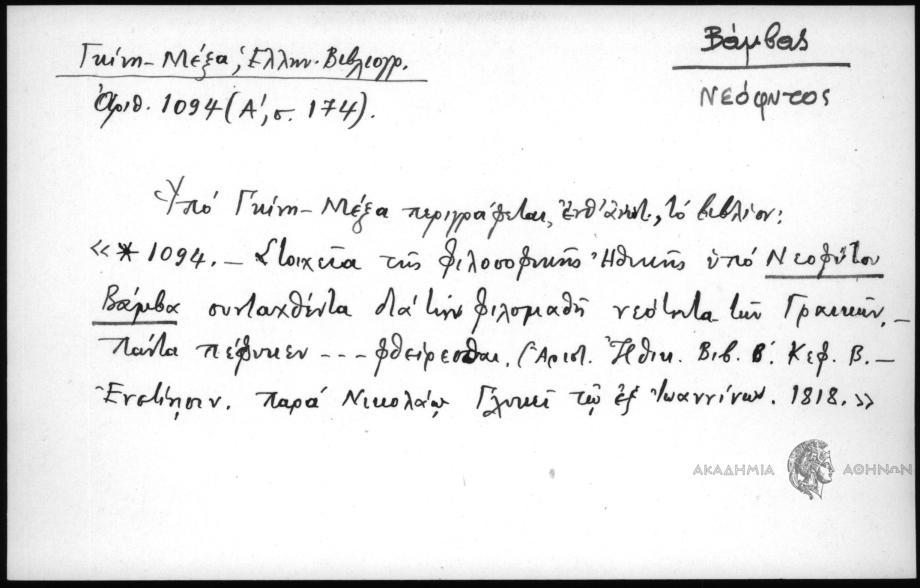 Βάμβας
Νεόφυτος
Γκίνη - Μέξα, Ελλην. Βιβλιογρ.
Ἀριθ. 1094 (Α', σ. 174).
Ὑπό Γκίνη - Μέξα περιγράφεται, τό βιβλίον:
«* 1094. - Στοιχεῖα τῆς φιλοσοφικῆς Ἠθικῆς ὑπό Νεοφύτου
Βάμβα συνταχθέντα διά τήν φιλομαθῆ νεότητα τῶν Γραικῶν. -
Ταῦτα πέφυκεν --- φθείρεσθαι. (Ἀριστ. Ἠθικ. Βιβ. Β'. Κεφ. Β. -
Ἐνετίῃσιν. παρά Νικολάῳ Γλυκεῖ τῷ ἐξ Ἰωαννίνων. 1818.»
ΑΚΑΔΗΜΙΑ ΑΘΗΝΩΝ